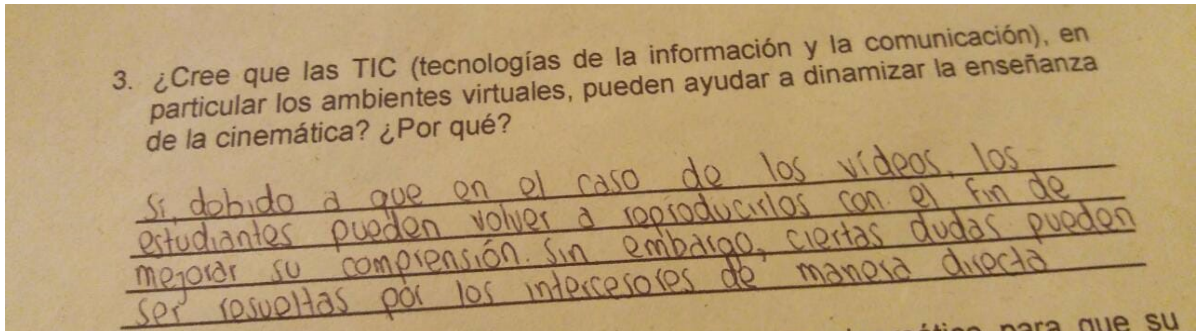 3. ¿Cree que las TIC (tecnologías de la información y la comunicación), en
particular los ambientes virtuales, pueden ayudar a dinamizar la enseñanza
de la cinemática? ¿Por qué?
Si, debido a que en el caso de los vídeos, los
estudiantes pueden volver a reproducirlos con el fin de
mejorar su comprensión. Sin embargo, ciertas dudas pueden
ser resueltas por los intercesores de manera directa
para que su